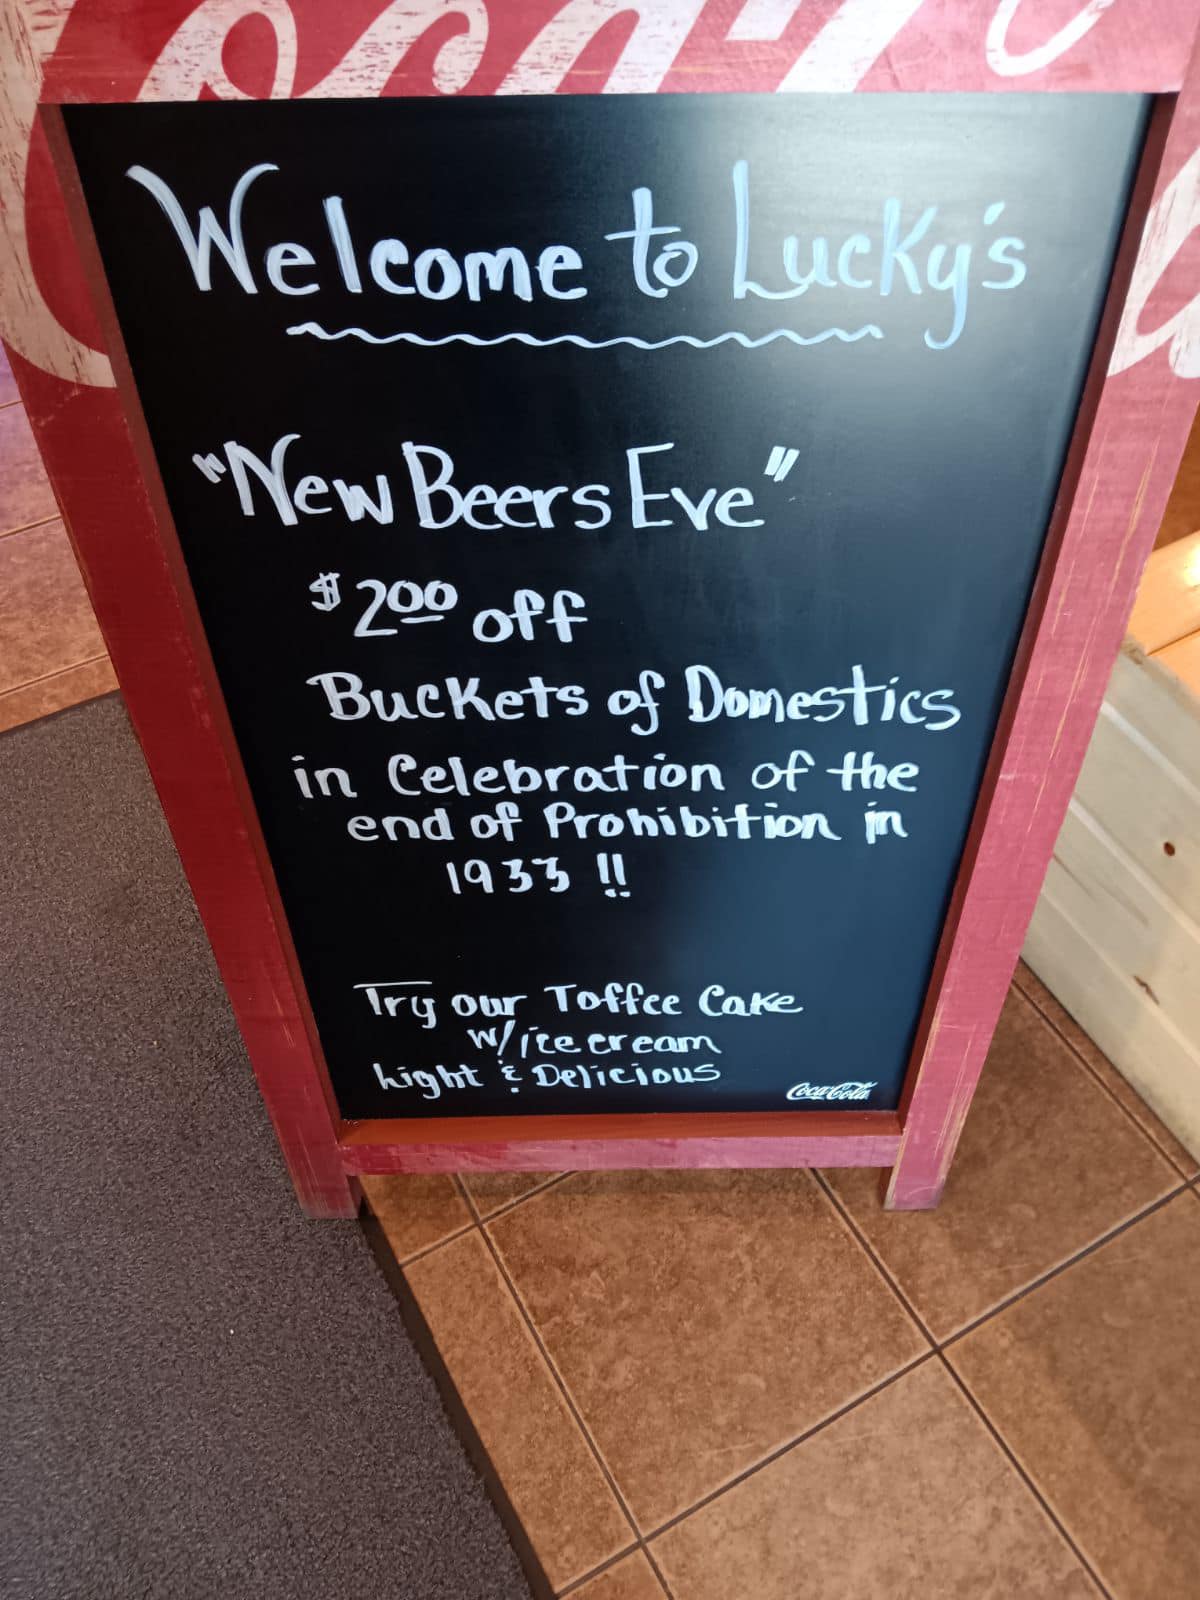 Coca-Cola
Welcome to Lucky's
"New Beers Eve"
$2.00 off
Buckets of Domestics
in Celebration of the
end of Prohibition in
1933 !!
Try our Toffee Cake
w/ice cream
Light & Delicious
Coca-Cola